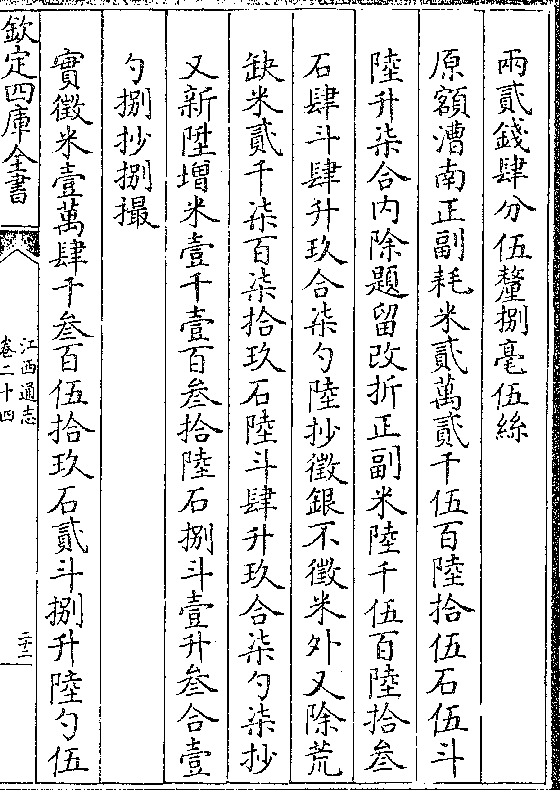 兩貳錢肆分伍釐捌毫伍絲
原額漕南正副耗米貳萬貳千伍百陸拾伍石伍斗
陸升柒合內除題留改折正副米陸千伍百陸拾叁
石肆斗肆升玖合柒勺陸抄徵銀不徵米外又除荒
缺米貳千柒百柒拾玖石陸斗肆升玖合柒勺柒抄
又新陞增米壹千壹百叁拾陸石捌斗壹升叁合壹
勺捌抄捌撮
實徵米壹萬肆千叁百伍拾玖石貳斗捌升陸勺伍
欽定四庫全書
江西通志
卷二十四
二十二